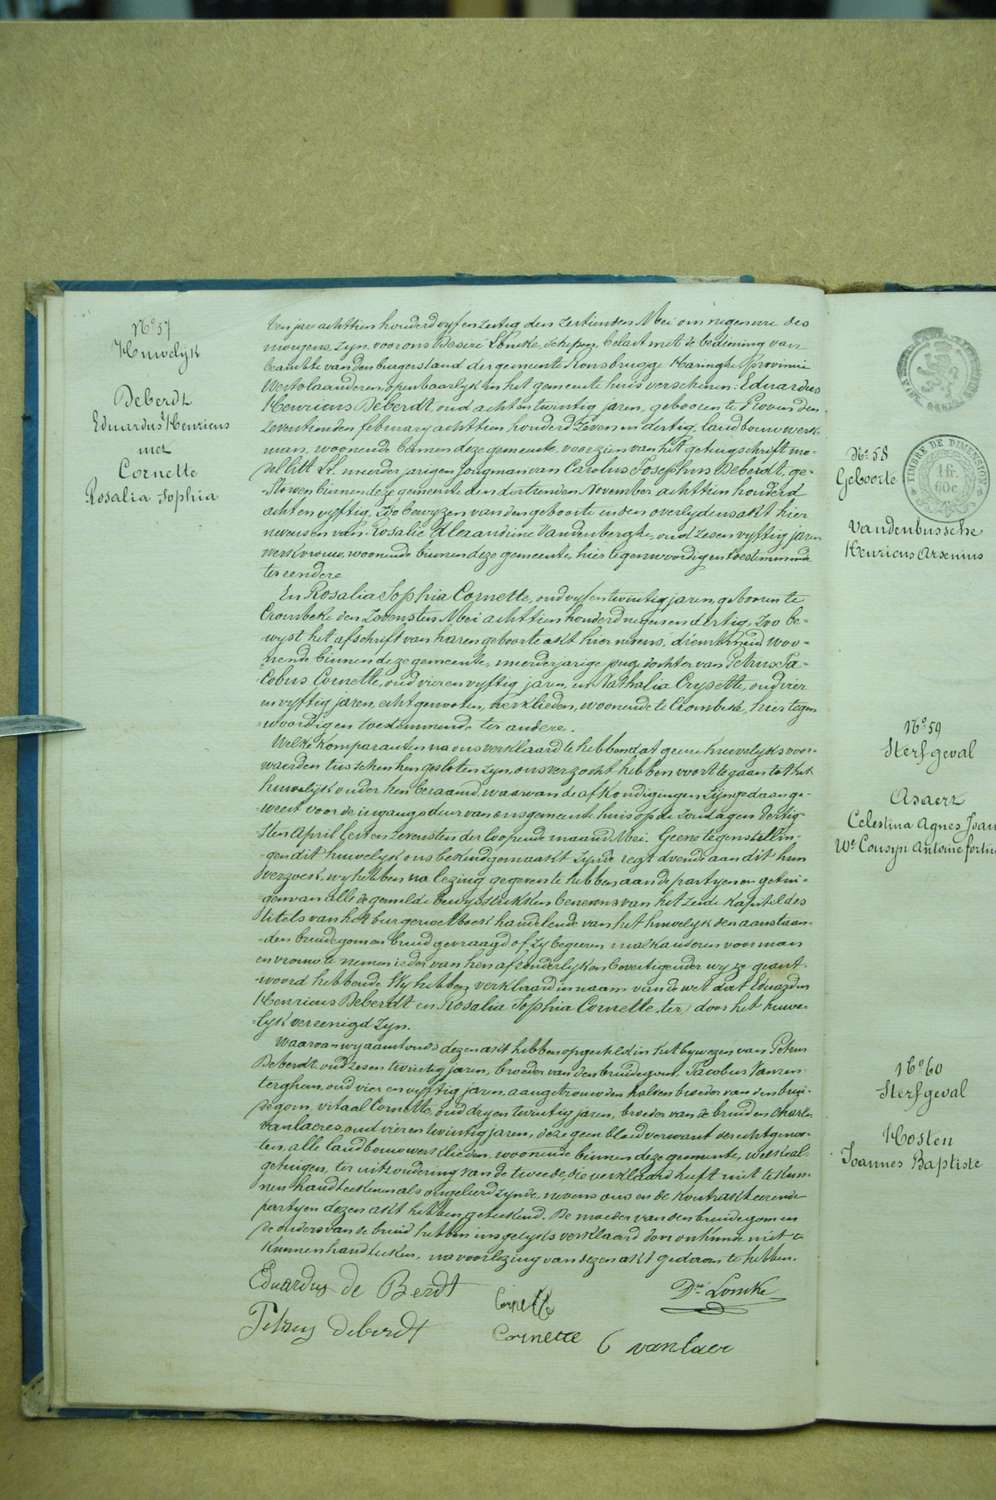 N.º 57
Huwelijk
Deberdt
Eduardus Henricus
met
Cornette
Rosalia Sophia
Ten jare achttien honderd vyf en zestig den zestienden Mei om negen ure des
morgens, zyn voor ons Deseré Loncke, schepen belast met de bediening van
beambte van den burgerstand der gemeente Ronsbrugge Haringhe Provincie
Westvlaanderen, openbaarlyk in het gemeente huis verschenen: Eduardus
Henricus Deberdt, oud acht en twintig jaren, geboren te Proven den
zeventienden february achttien honderd zeven en dertig, landbouwwerk-
man, woonende binnen deze gemeente, voorzien van het getuigschrift mo-
del litt. meerderjarigen jongman van Carolus Josephus Deberdt, ge-
storven binnen deze gemeente den dertienden November achttien honderd
acht en vyftig, zoo bewyzen van den geboorte en den overlydensakt hier
nevens en van Rosalie Alexandrine Vandenberghe, oud zes en vyftig jaren
werkvrouw, woonende binnen deze gemeente, hier tegenwoordig en toestemmende
ter eendere
En Rosalia Sophia Cornette, oud vyf en twintig jaren, geboren te
Crombeke den zevensten Mei achttien honderd negen en dertig, zoo be-
wyst het afschrift van haren geboorte akt hier nevens, dienstmeid woo-
nende binnen deze gemeente, meerderjarige jonge dochter van Petrus Ja-
cobus Cornette, oud vier en vyftig jaren, en Nathalia Crysette, oud vier
en vyftig jaren, echtgenooten, werklieden, woonende te Crombeke, hier tegen
woordig en toestemmende ter andere.
Welke komparanten na ons verklaard te hebben dat geene huwelyks voor-
waarden tusschen hen gesloten zyn, ons verzocht hebben voort te gaan tot het
huwelijk onder hen beraamd, waarvan de afkondigingen zyn gedaan ge-
weest voor de ingangs deur van ons gemeente huis op de zondagen dertig-
sten April lest en zevensten der loopende maand Mei. Geene tegenstellin-
gen dit huwelijk ons bekend gemaakt zynde regt doende aan dit hun
verzoek, wy hebben na lezing gegeven te hebben aan de partyen en getui-
gen van alle de gemelde bewysstukken benevens van het zesde kapittel des
titels van het burger wetboek handelende van het huwelijk den aanstaan-
den bruidegom en bruid gevraagd of zy begeeren malkanderen voor man
en vrouw te nemen ieder van hen afzonderlyk en bevestigender wyze geant-
woord hebbende wy hebben verklaard in naam van de wet dat Eduardus
Henricus Deberdt en Rosalia Sophia Cornette ter door het huwe-
lyk vereenigd zyn.
Waarvan wy aanstonds dezen akt hebben opgesteld in het bywezen van Petrus
Deberdt, oud zes en twintig jaren, broeder van den bruidegom, Jacobus Vanen-
terghem, oud vier en vyftig jaren, aangetrouwden halven broeder van den brui-
degom, vitaal Cornette, oud dry en twintig jaren, broeder van de bruid en Charles
vanlaeres, oud vier en twintig jaren, deze geen bloedverwant der echtgenoo-
ten, alle landbouwwerklieden, woonende binnen deze gemeente, welke al
getuigen, ter uitzondering van de tweede, die verklaard heeft niet te kun-
nen handteekenen als ongeleerd zynde, nevens ons en de kontrakteerende
partyen dezen akt hebben geteekend. De moeder van den bruidegom en
de ouders van de bruid hebben insgelyks verklaard door onkunde niet te
kunnen handteeken, na voorlezing van dezen akt gedaan te hebben.
Eduardus de Berdt
Cornette
Dré Loncke
Petrus deberdt
Cornette
C vanlaer
N.º 58
Geboorte
TIMBRE DE DIMENSION
1 fr.
60 c
Vandenbussche
Henricus Arsenius
N.º 59
Sterfgeval
Asaert
Celestina Agnes Joan
We Cousyn Antoine fortu
N.º 60
Sterfgeval
Hosten
Joannes Baptiste